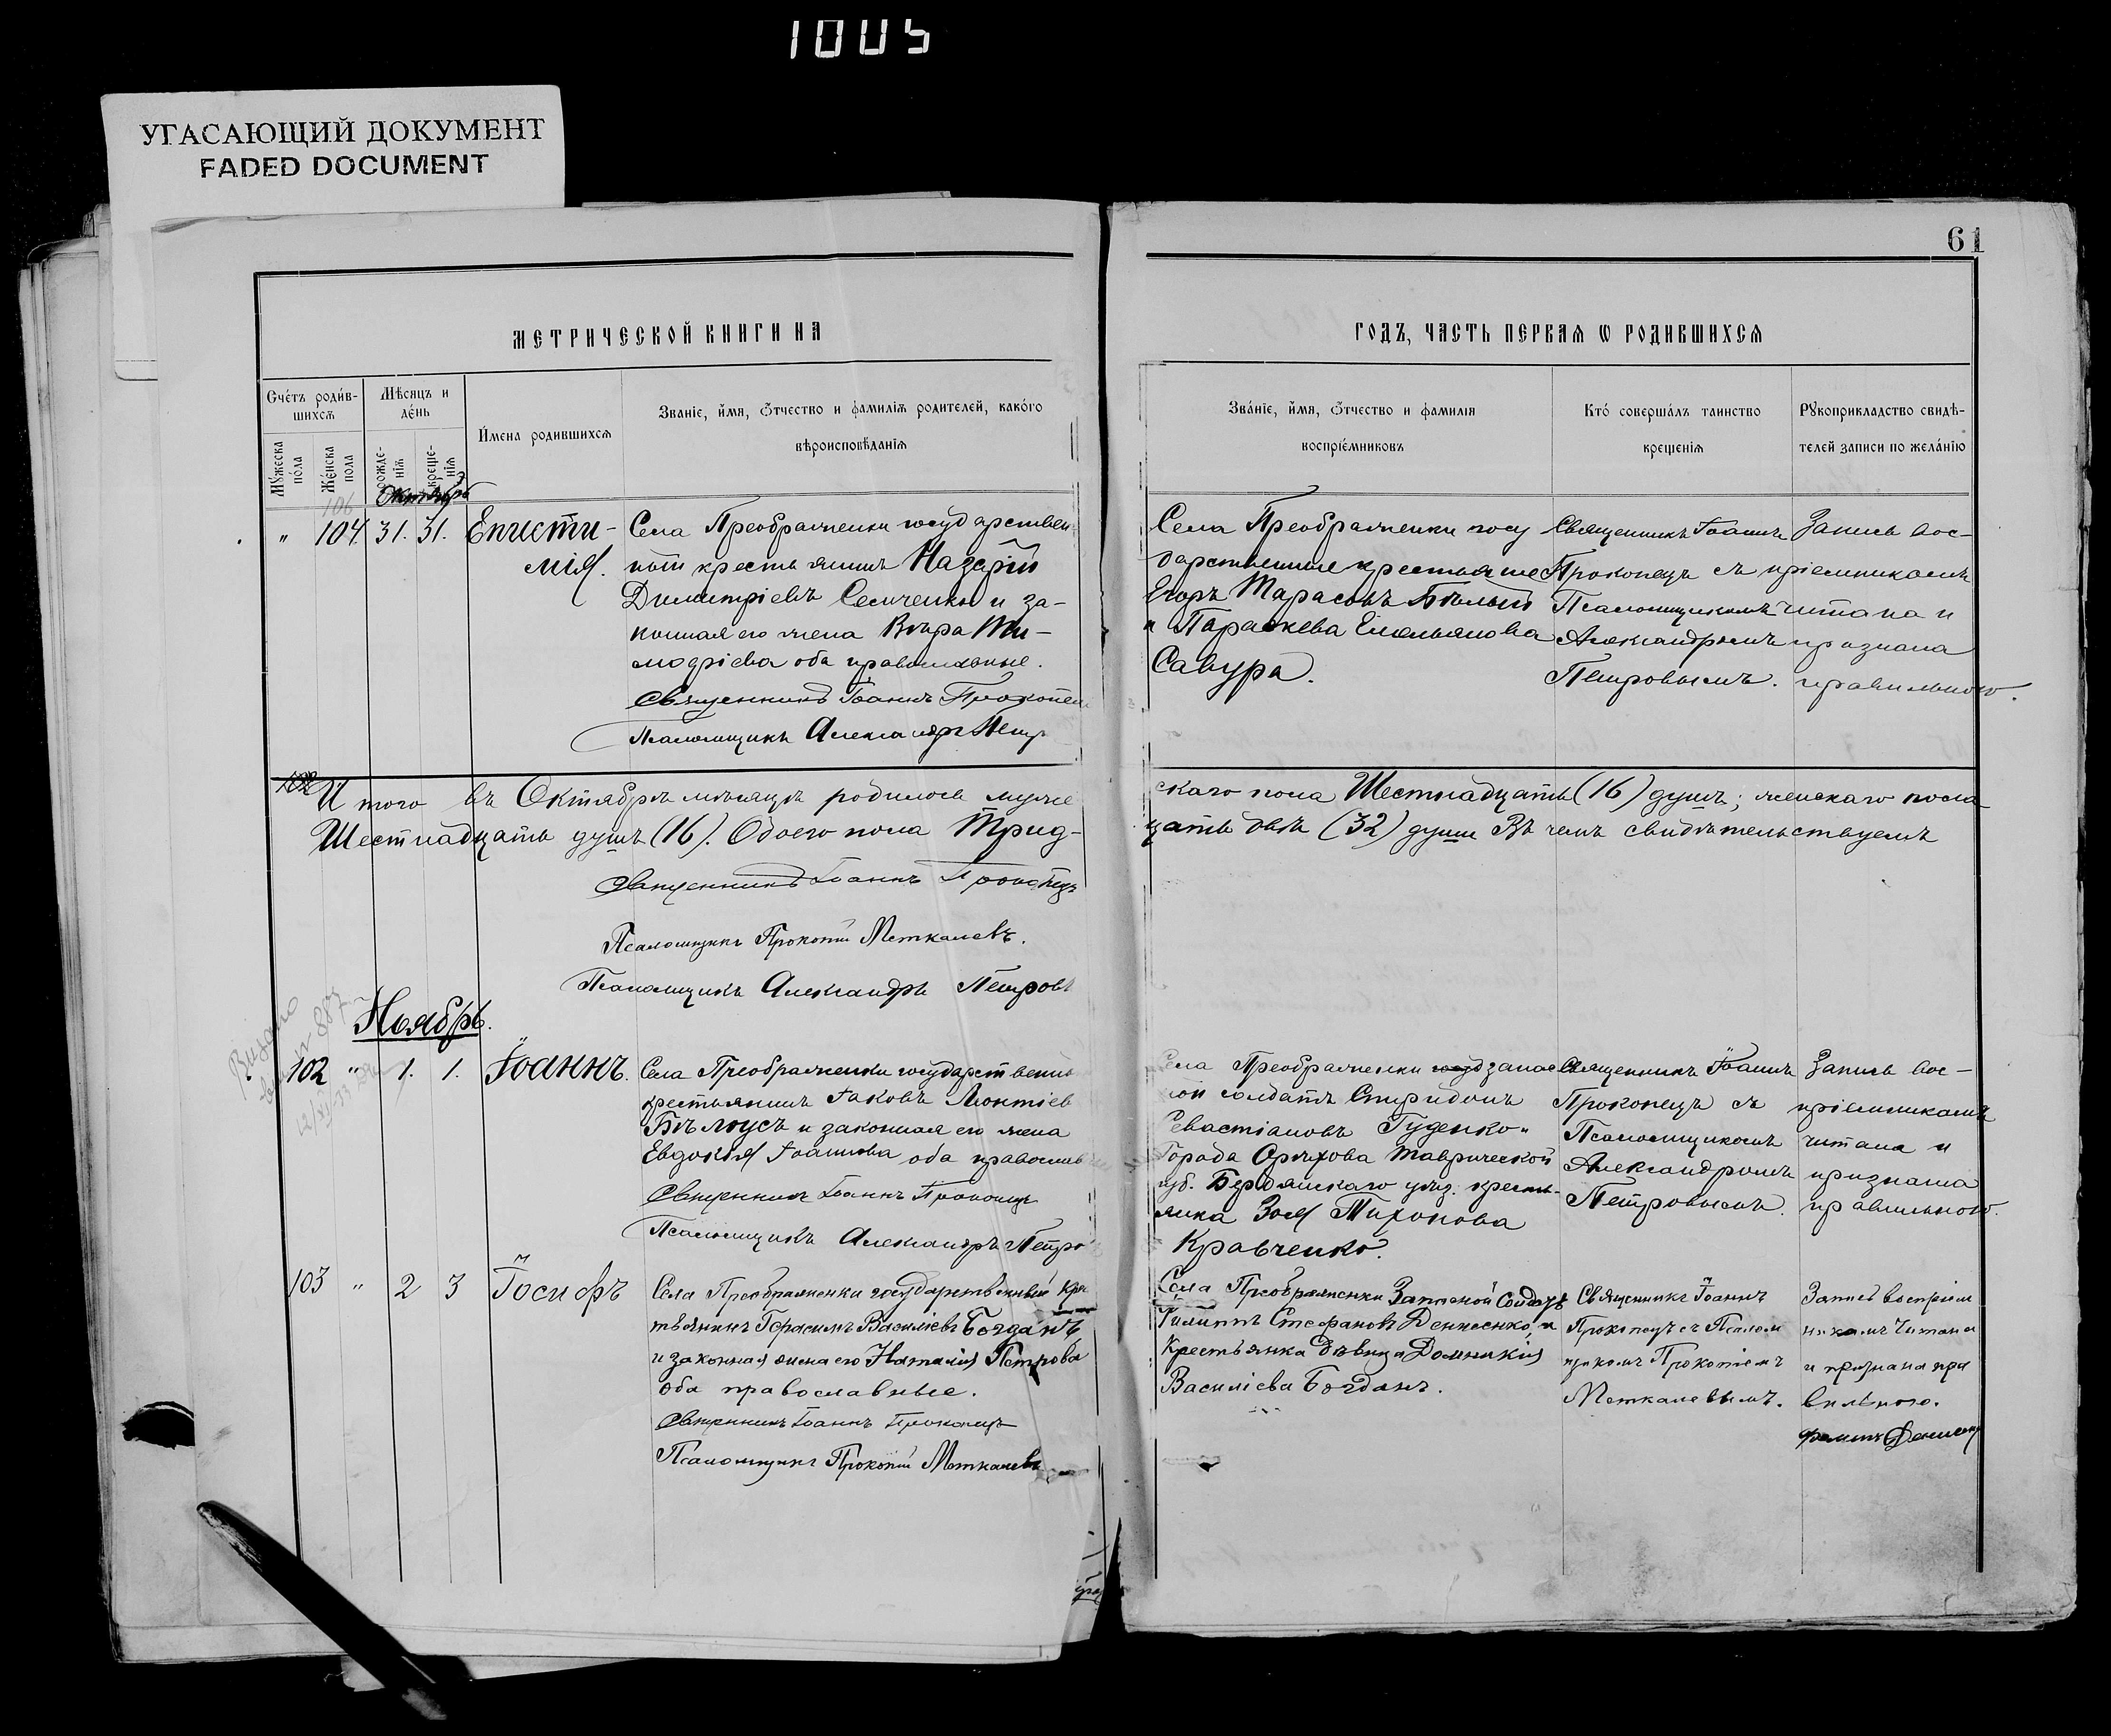 1005
УГАСАЮЩИЙ ДОКУМЕНТ
FADED DOCUMENT
61
МЕТРИЧЕСКОЙ КНИГИ НА
ГОДЪ, ЧАСТЬ ПЕРВАѦ Ѡ РОДИВШИХСѦ
Счéтъ роди́в-
шихсѧ
Мꙋ́жеска пóла
Жéнска пола
Мѣ́сяцъ и
дéнь
рожде-
нїѧ
креще-
нїѧ
И́мена родившихсѧ
Званїе, и́мя, ѻ́тчество и фамилїѧ родителей, како́го
вѣроисповѣ́данїѧ
Зва́нїе, и́мя, ѻ́тчество и фамилїя
воспрїе́мниковъ
Кто́ соверша́лъ таинство
крещенїя
Рꙋкоприкладство свидѣ́-
телей записи по жела́нїю
106
Октябрь
" 104 31. 31. Еписти-
мія.
Села Преображенки государствен
ный крестьянинъ Назарій
Димитріевъ Семченко и за-
конная его жена Вѣра Ти-
моѳеева оба православные.
Священникъ Іоаннъ Прокопец
Псаломщикъ Александръ Петр
Села Преображенки госу
дарственные крестьяне
Егоръ Тарасовъ Бѣлый
и Параскева Емельянова
Савура.
Священникъ Іоаннъ
Прокопецъ съ
Псаломщикомъ
Александромъ
Петровымъ.
Запись вос-
пріемникамъ
читана и
признана
правильною.
Итого въ Октябрѣ мѣсяцѣ родилось муже
скаго пола Шестнадцать (16) душъ; женскаго пола
Шестнадцать душъ (16). Обоего пола Трид-
цать двѣ (32) души Въ чемъ свидѣтельствуемъ
Священникъ Іоаннъ Прокопецъ
Псаломщикъ Прокопій Меткалевъ.
Псаломщикъ Александръ Петровъ
Ноябрь.
102 " 1. 1. Іоаннъ.
Села Преображенки государственн
крестьянинъ Іаковъ Леонтіев
Бѣлоусъ и законная его жена
Евдокія Іоаннова оба православ
Священникъ Іоаннъ Прокопецъ
Псаломщикъ Александръ Петро
Села Преображенки запас
ной солдатъ Спиридонъ
Севастіановъ Гуденко и
Города Орѣхова Таврической
губ. Бердянскаго уѣз. кресть-
янка Зоя Тихонова
Кравченко.
Священникъ Іоаннъ
Прокопецъ съ
Псаломщикомъ
Александромъ
Петровымъ.
Запись вос-
пріемникамъ
читана и
признана
правильною.
103 " 2 3 Іосифъ
Села Преображенки государственный кре
тьянинъ Герасимъ Василіевъ Богданъ
и законная жена его Наталія Петрова
оба православные.
Священникъ Іоаннъ Прокопецъ
Псаломщикъ Прокопій Меткалевъ
Села Преображенки Запасной Солдатъ
Филиппъ Стефановъ Денисенко, и
Крестьянка дѣвица Домникія
Василіева Богданъ.
Священникъ Іоаннъ
Прокопецъ съ Псалом
щикомъ Прокопіемъ
Меткалевымъ.
Запись воспріем
никамъ Читана
и признана пра
вильною.